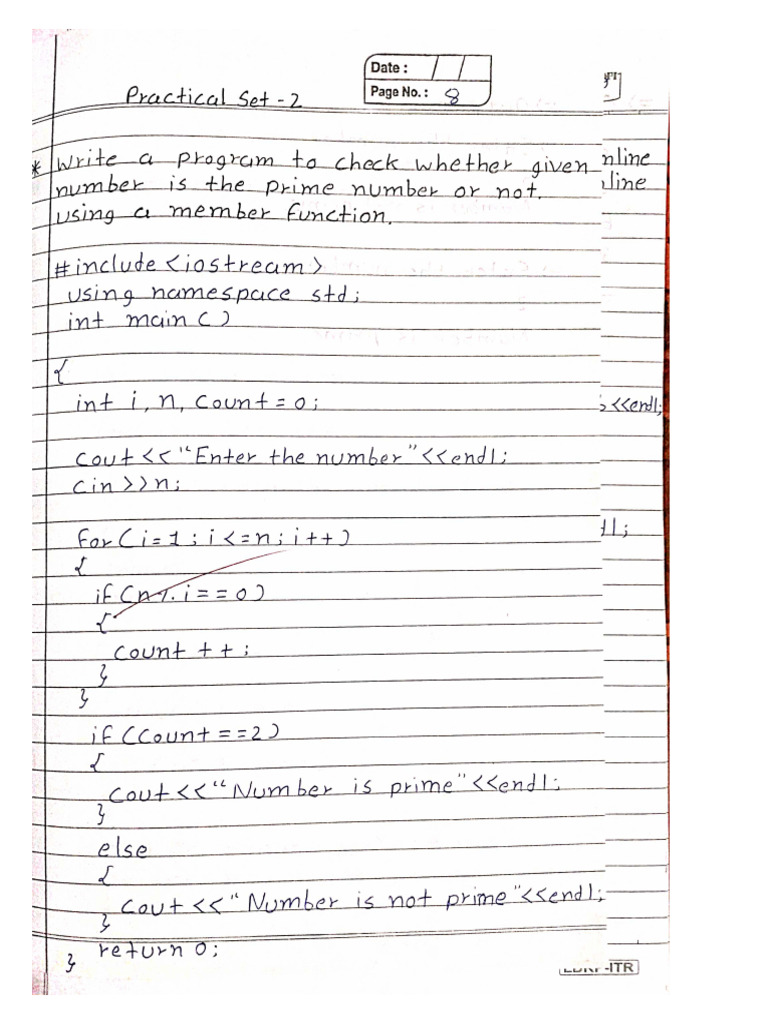 Date : / /
Page No. : 8
Practical Set - 2
* Write a program to check whether given
number is the prime number or not.
using a member function.
nline
line
#include <iostream>
using namespace std;
int main ( )
{
int i, n, count = 0;
<<endl;
cout << "Enter the number" <<endl;
cin >> n;
for ( i = 1 ; i <= n ; i ++ )
{
if ( n % i == 0 )
{
count ++ ;
}
}
if ( count == 2 )
{
cout << "Number is prime" <<endl;
}
else
{
cout << "Number is not prime" <<endl;
}
return 0;
}
-ITR